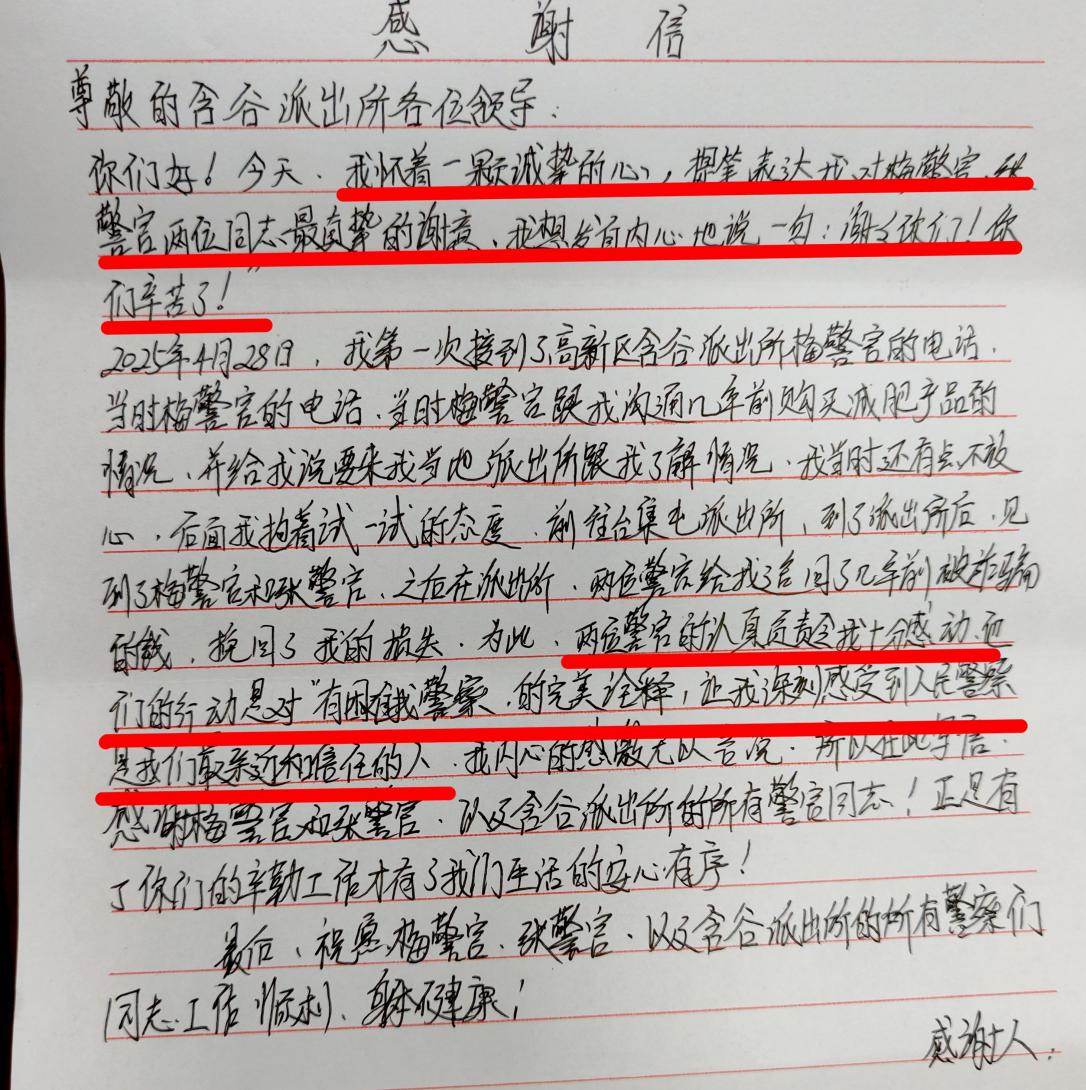 感谢信
尊敬的含谷派出所各位领导:
你们好!今天、我怀着一颗诚挚的心,提笔表达我对梅警官、张
警官两位同志最真挚的谢意、我想发自内心地说一句:谢谢你们!你
们辛苦了!”
2025年4月28日,我第一次接到了高新区含谷派出所梅警官的电话、
当时梅警官的电话、当时梅警官跟我沟通几年前购买减肥产品的
情况、并给我说要来我当地派出所跟我了解情况、我当时还有点不放
心、后面我抱着试一试的态度、前往台集屯派出所、到了派出所后、见
到了梅警官和张警官、之后在派出所、两位警官给我了追回了几年前被诈骗
的钱、挽回了我的损失、为此、两位警官的认真负责令我十分感动、他
们的行动是对“有困难找警察、的完美诠释,让我深刻感受到人民警察
是我们最亲近和信任的人、我内心的感激无以言说、所以在此写信、
感谢梅警官和张警官、以及含谷派出所的所有警官同志!正是有
了你们的辛勤工作才有了我们生活的安心有序!
最后、祝愿梅警官、张警官、以及含谷派出所的所有警察们
同志工作顺利、身体健康!
感谢人: